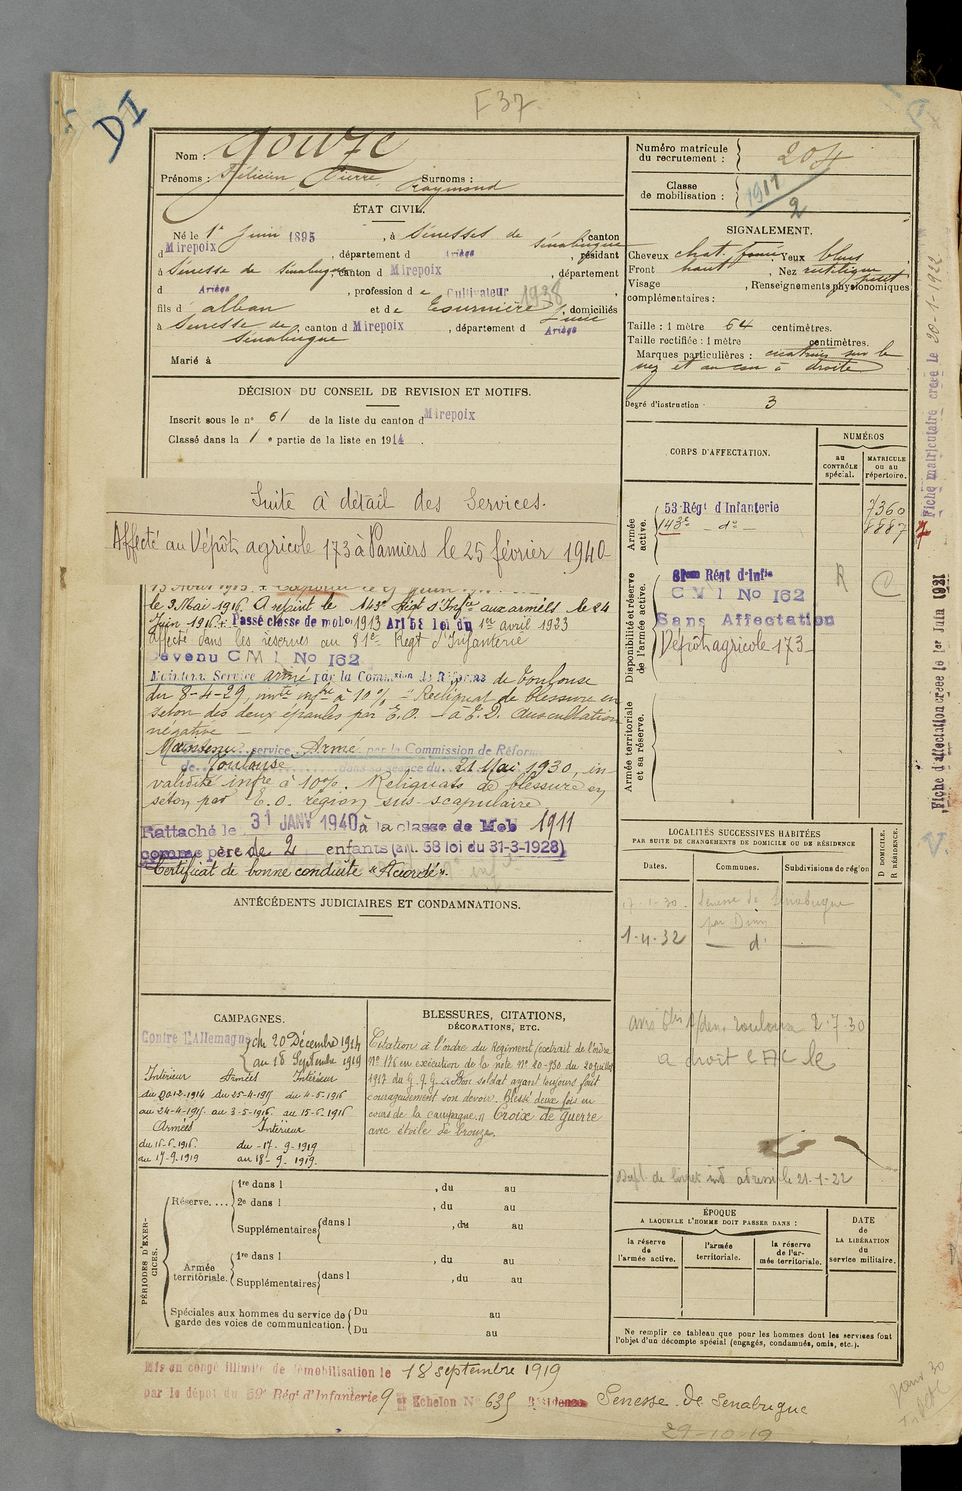 F 37.
DI
Nom : Gouze
Prénoms : Félicien Pierre Surnoms :
Raymond
ÉTAT CIVIL.
Né le 1er Juin 1895, à Senesses de Senabugue canton
d Mirepoix, département d Ariège, résidant
à Senesse de Senabugue canton d Mirepoix, département
d Ariège, profession de Cultivateur 1938
fils d' alban et de Tournière Lucie, domiciliés
à Senesse de Senabugue, canton d Mirepoix, département d Ariège
Marié à
DÉCISION DU CONSEIL DE REVISION ET MOTIFS.
Inscrit sous le n° 61 de la liste du canton d Mirepoix
Classé dans la 1 e partie de la liste en 1914.
Suite à détail des Services.
Affecté au Dépôt agricole 173 à Pamiers le 25 février 1940
le 3 Mai 1916. A rejoint le 143e Régt d'Infie aux armées le 24
Juin 1916. Passé classe de mob. 1913 Art 58 loi du 1er avril 1923
Affecté dans les réserves au 81e Régt d'Infanterie
Devenu C M I No 162
Maintenu Service armé par la Commission de Réforme de Toulouse
du 8-4-29, invte infre à 10% : Reliquat de blessure en
seton des deux épaules par E.O. - à E.D. Auscultation
négative
Maintenu service Armé par la Commission de Réforme
de Toulouse dans sa séance du 21 Mai 1930, in-
validité infre à 10%. Reliquats de blessure en
seton par E.O. région sus-scapulaire
Rattaché le 31 JANV 1940 à la classe de Mob 1911
comme père de 2 enfants (art. 58 loi du 31-3-1928)
Certificat de bonne conduite "Accordé".
ANTÉCÉDENTS JUDICIAIRES ET CONDAMNATIONS.
CAMPAGNES.
Contre l'Allemagne du 20 Décembre 1914
au 18 Septembre 1919
Intérieur Armées Intérieur
du 20-12-1914 du 25-4-1915 du 4-5-1916
au 24-4-1915 au 3-5-1916 au 15-6-1916
Armées Intérieur
du 16-6-1916. du -17-9-1919
au 17-9-1919 au 18-9-1919.
BLESSURES, CITATIONS,
DÉCORATIONS, ETC.
Citation à l'ordre du Régiment (extrait de l'ordre
N° 176 en exécution de la note N° 20-930 du 20 juillet
1917 du G.Q.G. « Bon soldat ayant toujours fait
courageusement son devoir. Blessé deux fois en
cours de la campagne. » Croix de guerre
avec étoile de bronze.
PÉRIODES D'EXERCICES.
Réserve....
1re dans l , du au
2e dans l , du au
Supplémentaires dans l , du au
Armée territoriale.
1re dans l , du au
Supplémentaires dans l , du au
Spéciales aux hommes du service de garde des voies de communication.
Du au
Du au
Numéro matricule du recrutement : 204
Classe de mobilisation : 1911
2
SIGNALEMENT.
Cheveux chat. foncé Yeux bleus
Front haut, Nez rectiligne
petit
Visage , Renseignements physionomiques
complémentaires :
Taille : 1 mètre 64 centimètres.
Taille rectifiée : 1 mètre centimètres.
Marques particulières : cicatrices sur le
nez et au cou à droite
Degré d'instruction : 3
CORPS D'AFFECTATION.
NUMÉROS
AU CONTRÔLE spécial.
MATRICULE ou au répertoire.
Armée active.
53 Régt d'Infanterie 7360
143e - do - 8887
Disponibilité et réserve de l'armée active.
81eme Régt d'Infie R C
C M I No 162
Sans Affectation
Dépôt agricole 173
Armée territoriale et sa réserve.
LOCALITÉS SUCCESSIVES HABITÉES
PAR SUITE DE CHANGEMENTS DE DOMICILE OU DE RÉSIDENCE
Dates. Communes. Subdivisions de région
D DOMICILE. R RÉSIDENCE.
17-1-30. Senesse de Senabugue
par Dun
1-4-32 — d° —
Toulouse 2-7-30
a droit C A C le
le 21-1-22
ÉPOQUE
A LAQUELLE L'HOMME DOIT PASSER DANS :
la réserve de l'armée active.
l'armée territoriale.
la réserve de l'armée territoriale.
DATE de LA LIBÉRATION du service militaire.
Ne remplir ce tableau que pour les hommes dont les services font
l'objet d'un décompte spécial (engagés, condamnés, omis, etc.).
Mis en congé illimité de démobilisation le 18 septembre 1919
par le dépôt du 59e Régt d'Infanterie 9 e Echelon No 635 Résidence Senesse de Senabugue
29-10-19
Fiche matriculaire créée le 20-1-1922
Fiche d'affectation créée le 1er Juin 1921